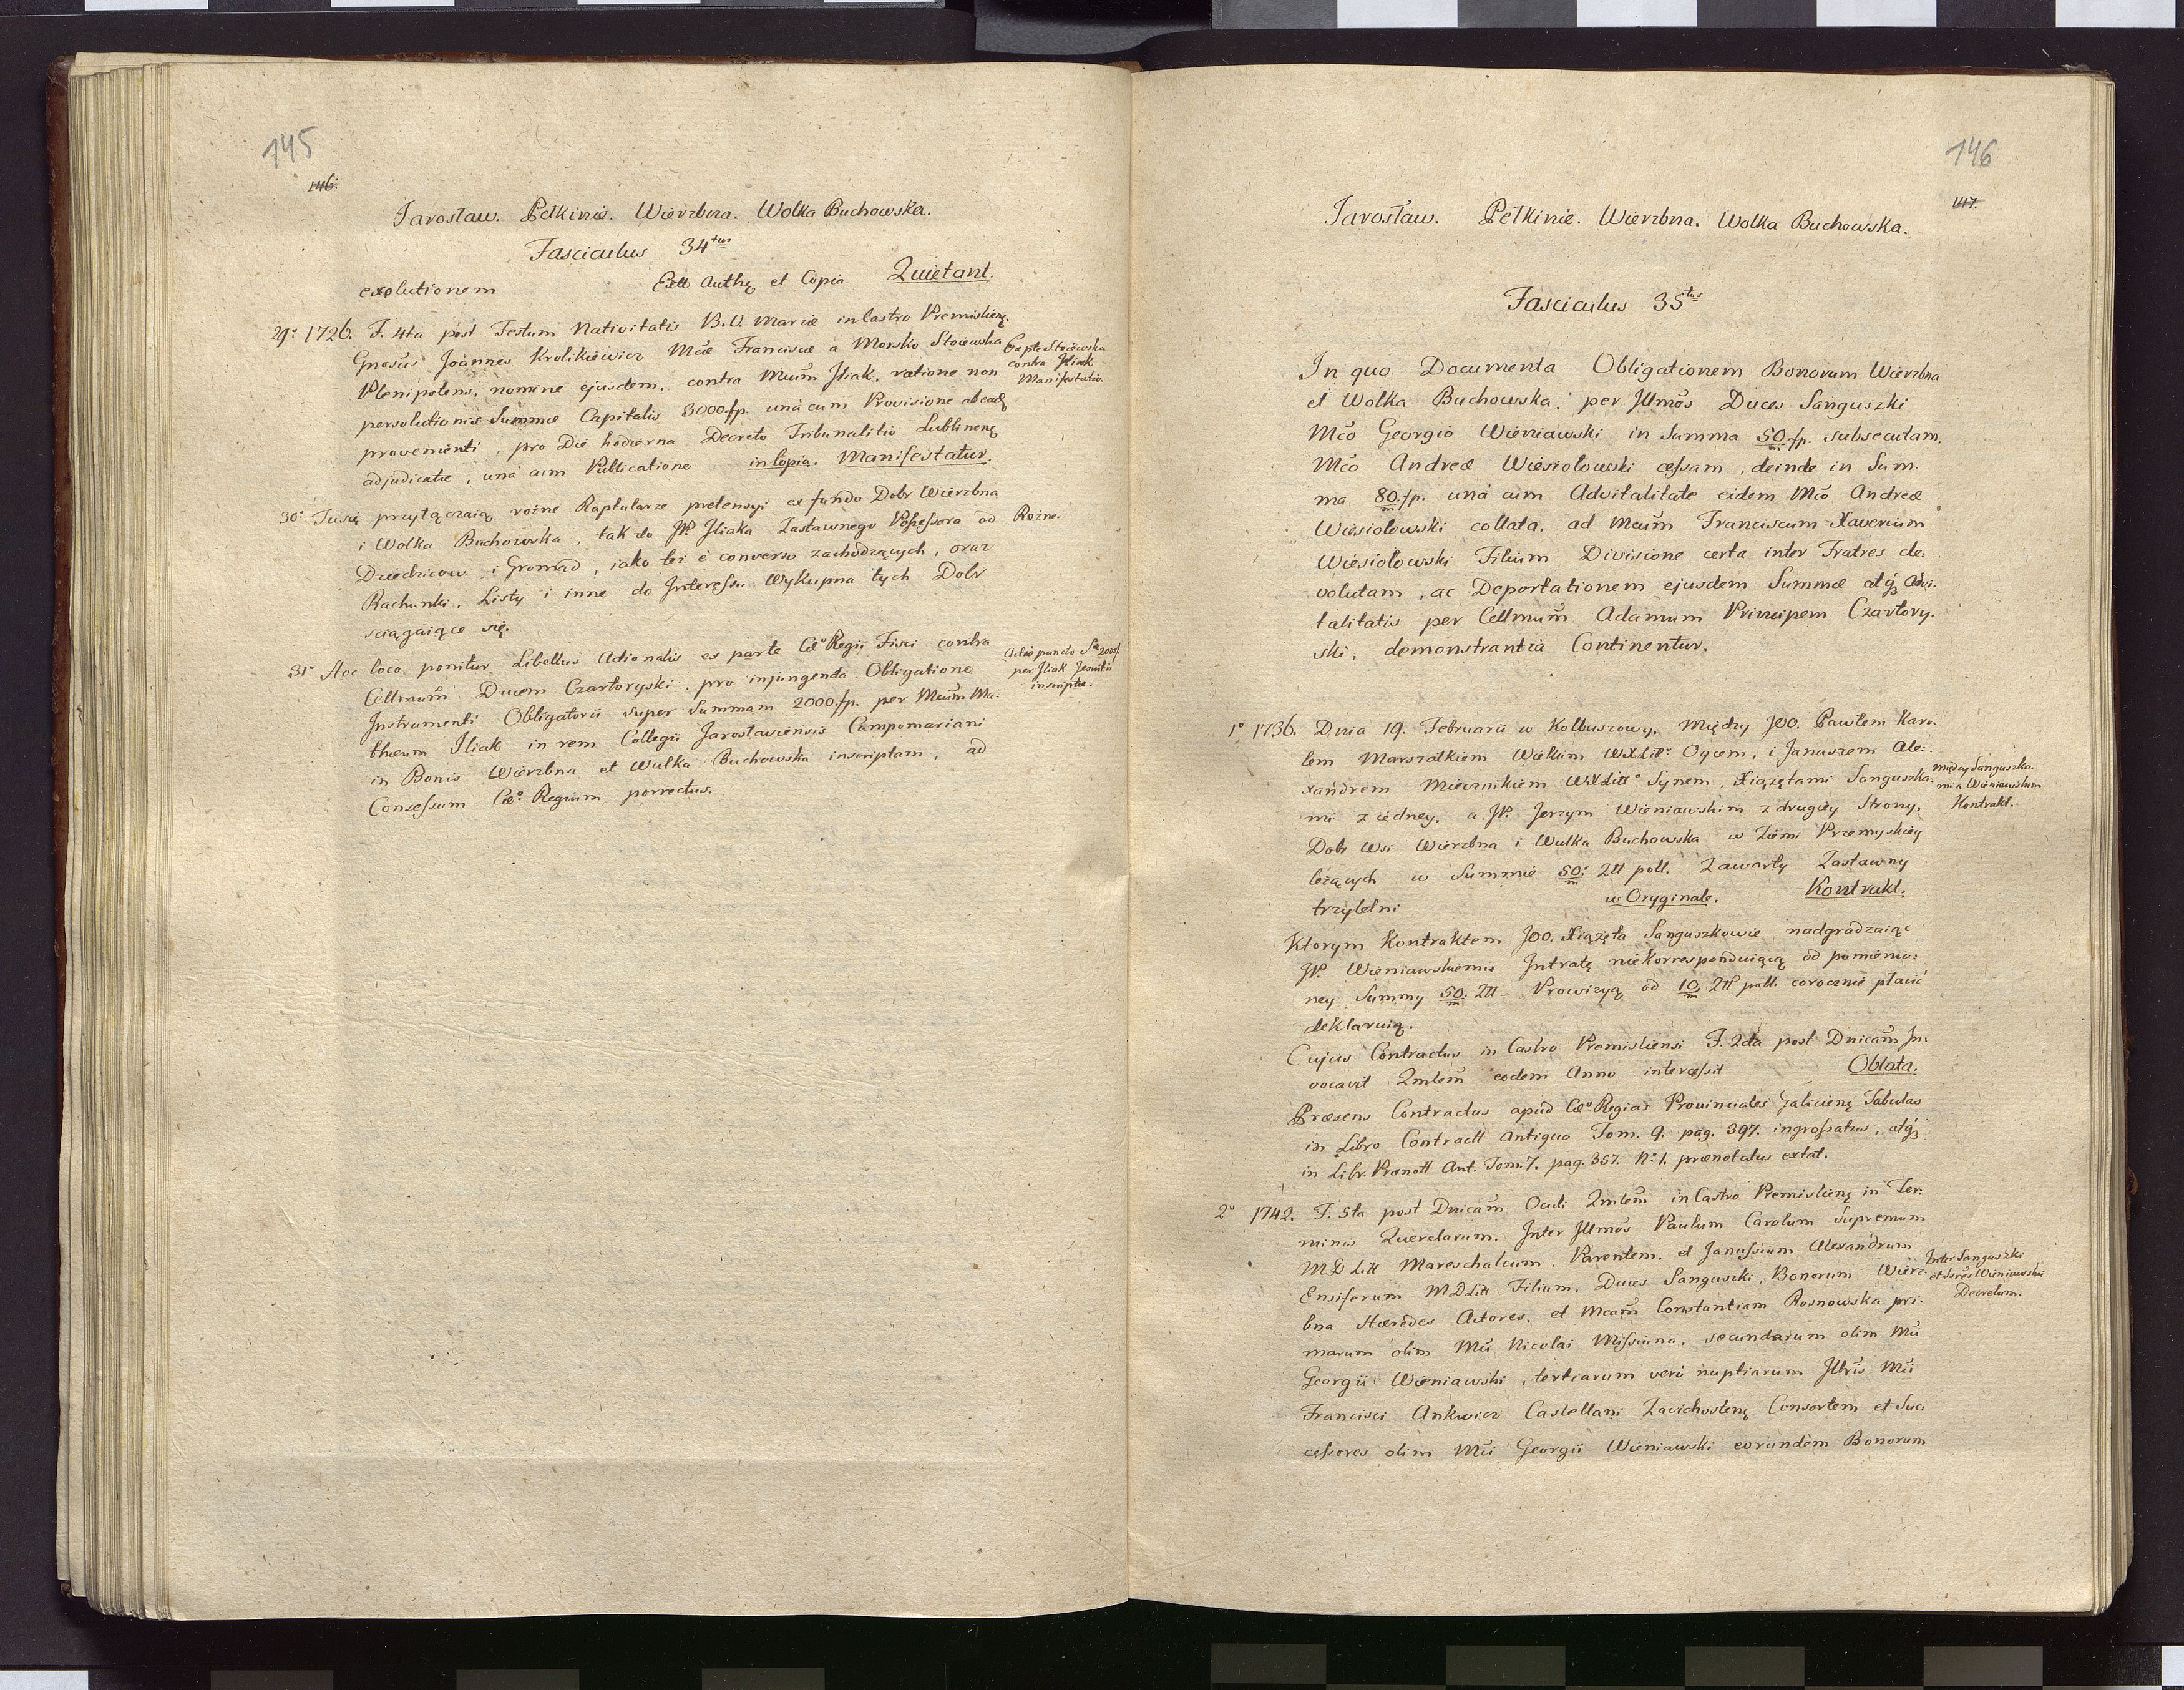 145
146.
Jarosław. Pełkinie. Wierzbna. Wolka Buchowska.
Fasciculus 34tus
exolutionem Extt Authq et Copia Quietant.
29o 1726. F. 4ta post Festum Nativitatis B. V. Mariæ in Castro Premislienq.
Gnosus Joannes Krolikiewicz Mcæ Franciscæ a Morsko Stoiowska
Plenipotens, nomine ejusdem, contra Mcum Iliak, ratione non
persolutionis Summæ Capitalis 3000 fp. unà cum Provisione ab eadq
provenienti, pro Die hodierna Decreto Tribunalitio Lublinenq
adjudicatæ, unà cum Publicatione in Copia. Manifestatur.
Ex pte Stoiowska
contra Iliak
Manifestatio.
30o Tusię przyłączaią rożne Raptularze pretensyi ex fundo Dobr Wierzbna
i Wolka Buchowska, tak do JP. Iliaka Zastawnego Possessora od
Dziedzicow i Gromad, iako też è converso zachodzących, oraz
Rachunki, Listy i inne do Interessu Wykupna tych Dobr
sciągaiące się.
Rożne.
31o Hoc loco ponitur Libellus Actionalis ex parte Cæo Regii Fisci contra
Cellmum Ducem Czartoryski, pro injungenda Obligatione
Instrumenti Obligatorii super Summam 2000 fp. per Mcum Ma-
thæum Iliak in rem Collegii Jaroslaviensis Campomariani
in Bonis Wierzbna et Wulka Buchowska inscriptam, ad
Consessum Cæo Regium porrectus.
Actio puncto Sæ 2000 f
per Iliak Jesuitis
inscriptæ.
146
147.
Jarosław. Pełkinie. Wierzbna. Wolka Buchowska.
Fasciculus 35tus
In quo Documenta Obligationem Bonorum Wierzbna
et Wolka Buchowska, per Illmos Duces Sanguszki
Mco Georgio Wieniawski in Summa 50/m fp. subsecutam,
Mco Andreæ Wiesiołowski cessam, deinde in Sum-
ma 80/m fp. unà cum Advitalitate eidem Mco Andreæ
Wiesiołowski collata, ad Mcum Franciscum Xaverium
Wiesiołowski Filium Divisione certa inter Fratres de-
volutam, ac Deportationem ejusdem Summæ atq3 Advi-
talitatis per Cellmum Adamum Principem Czartory-
ski, demonstrantia Continentur.
1o 1736. Dnia 19. Februarii w Kolbuszowy, Między JOO. Pawłem Karo-
lem Marszałkiem Wielkim WXLitto Oycem, i Januszem Ale-
xandrem Miecznikiem WXLitto Synem, Xiążętami Sanguszka-
mi z iedney, a JP. Jerzym Wieniawskim z drugiey Strony,
Dobr Wsi Wierzbna i Wulka Buchowska w Ziemi Przemyskiey
leżących w Summie 50/m Ztt poll. Zawarty Zastawny
trzyletni w Oryginale. Kontrakt.
Między Sanguszka-
mi a Wieniawskim
Kontrakt.
Ktorym Kontraktem JOO. Xiążęta Sanguszkowie nadgradzaiąc
JP. Wieniawskiemu Intratę niekorrespondviącą od pomienio-
ney Summy 50/m Ztt - Prowizyą od 10/m Ztt poll. corocznie płacić
deklaruią.
Cujus Contractus in Castro Premisliensi F. 2da post Dnicam In-
vocavit Qmlem eodem Anno intercessit Oblata.
Præsens Contractus apud Cæo Regias Provinciales Galicienq Tabulas
in Libro Contractt Antiquo Tom. 9. pag. 397. ingrossatus, atq3
in Libr. Prænott Ant. Tom. 7. pag. 357. No 1. prænotatus extat.
2o 1742. F. 5ta post Dnicam Oculi Qmlem in Castro Premislienq in Ter-
minis Querelarum. Inter Illmos Paulum Carolum Supremum
MD Litt Mareschalcum, Parentem, et Janussium Alexandrum
Ensiferum MDLitt Filium, Duces Sanguszki, Bonorum Wierz-
bna Hæredes Actores, et Mcam Constantiam Rosnowska pri-
marum olim Mci Nicolai Missiuna, secundarum olim Mci
Georgii Wieniawski, tertiarum verò nuptiarum Illris Mci
Francisci Ankwicz Castellani Zavichostenq Consortem et Suc-
cessores olim Mci Georgii Wieniawski eorundem Bonorum
Inter Sanguszki
et Sres Wieniawski
Decretum.